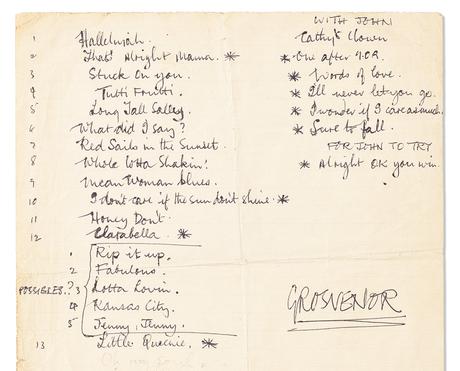 1 Hallelujah.
2 That's Alright Mama. *
3 Stuck On you.
4 Tutti Frutti.
5 Long Tall Sally.
6 What did I say?
7 Red Sails in the Sunset.
8 Whole lotta Shakin'.
9 Mean Woman blues.
10 I don't care if the sun don't shine. *
11 Honey Don't.
12 Clarabella. *
POSSIBLES.?
1 Rip it up.
2 Fabulous.
3 Lotta Lovin.
4 Kansas City.
5 Jenny, Jenny.
13 Little Queenie. *
WITH JOHN
Cathy's Clown
* One after 9.0.9.
* Words of love.
* I'll never let you go.
* I wonder if I care as much.
* Sure to fall.
FOR JOHN TO TRY
* Alright OK you win.
GROSVENOR